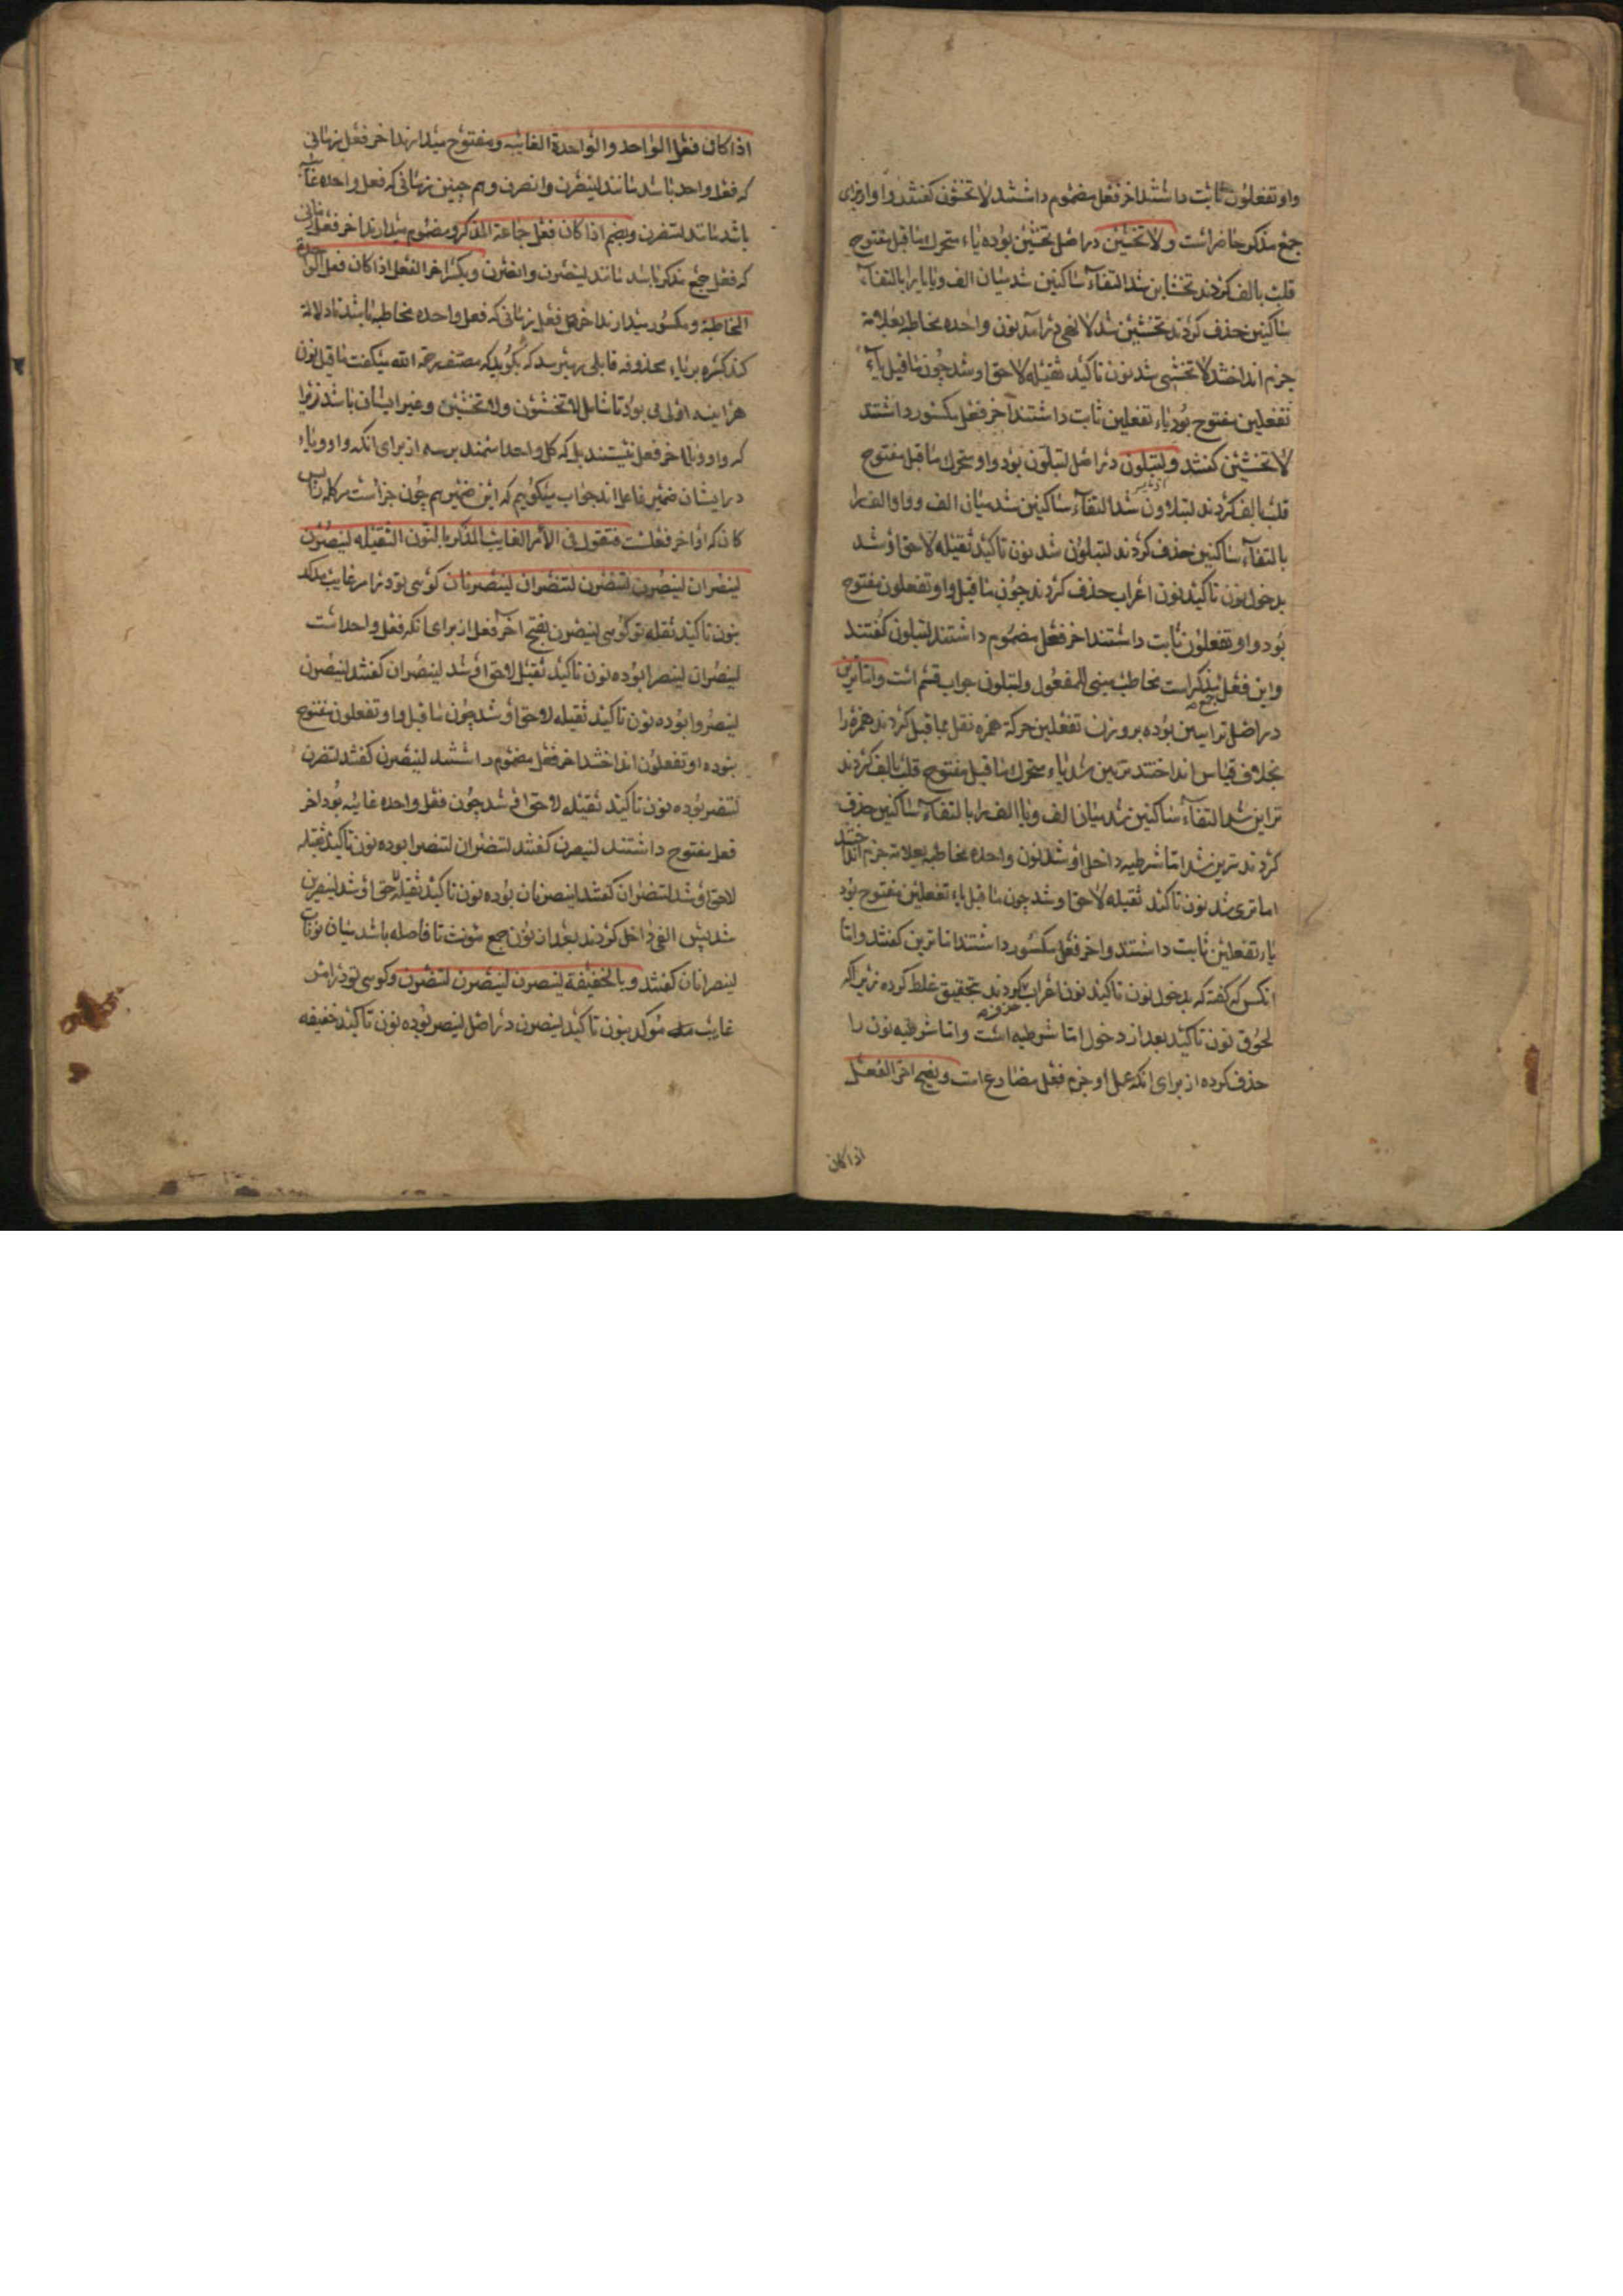 واو تفعلون ثابت داشتند اخر فعل مضموم داشتند لاتخشون کفتند و واو از برای
جمع مذکر حاضر است و لاتخشین در اصل تخشیین بوده یاء متحرک ماقبل مفتوح
قلب بالف کردند تخشاین شد التقاء ساکنین شد میان الف و یا یا را بالتقاء
ساکنین حذف کردند تخشین شد لا نهی در امد نون واحده مخاطبه بعلامة
جزم انداختند لاتخشی شد نون تاکید ثقیله لاحق او شد چون ماقبل یاء
تفعلین مفتوح بود یاء تفعلین ثابت داشتند اخر فعل مکسور داشتند
لاتخشین کفتند و لتبلون در اصل لتبلوون بود واو متحرک ماقبل مفتوح
قلب بالف کردند لتبلاون شد التقاء ساکنین شد میان الف و واو الف را
بالتقاء ساکنین حذف کردند لتبلون شد نون تاکید ثقیله لاحق او شد
بدخول نون تاکید نون اعراب حذف کردند چون ماقبل واو تفعلون مفتوح
بود واو تفعلون ثابت داشتند اخر فعل مضموم داشتند لتبلون کفتند
و این فعل جمع مذکر است مخاطب مبنی للمفعول و لتبلون جواب قسم است و اما ترین
در اصل ترایین بوده بر وزن تفعلین حرکة همزه نقل بماقبل کردند همزه را
بخلاف قیاس انداختند تریین شد یاء متحرک ماقبل مفتوح قلب بالف کردند
تراین شد التقاء ساکنین شد میان الف و یا الف را بالتقاء ساکنین حذف
کردند ترین شد اما شرطیه داخل او شد نون واحده مخاطبه بعلامة جزم انداختند
اما تری شد نون تاکید ثقیله لاحق او شد چون ماقبل یاء تفعلین مفتوح بود
یاء تفعلین ثابت داشتند و اخر فعل مکسور داشتند اما ترین کفتند و اما
انکس که کفته که بدخول نون تاکید نون اعراب حذف کردند بتحقیق غلط کرده زیراکه
لحوق نون تاکید بعد از دخول اما شرطیه است و اما شرطیه نون را
حذف کرده از برای انکه عمل او جزم فعل مضارع است و بفتح اخر الفعل
اذا کان
اذا کان فعل الواحد والواحدة الغایبه و مفتوح میدارند اخر فعل زمانی
که فعل واحد باشد مانند لینصرن وانصرن و هم چنین زمانی که فعل واحده غایبه
باشد مانند لتنصرن و بضم اذا کان فعل جماعة المذکر و مضموم میدارند اخر فعل زمانی
که فعل جمع مذکر باشد مانند لینصرن وانصرن و بکسر اخر الفعل اذا کان فعل الواحدة
المخاطبة و مکسور میدارند اخر فعل زمانی که فعل واحده مخاطبه باشد تا دلالة
کند کسره بر یاء محذوفه قایلی میرسد که بکوید که مصنف رحمه الله میکفت ماقبل نون
هراینه اولی می بود تا شامل لاتخشون ولاتخشین و غیر ایشان باشد زیرا
که واو و یا اخر فعل نیستند بلکه کل واحد اسمند از برای انکه واو و یاء
در ایشان ضمیر فاعل اند جواب میکوییم که این ضمیر هم چون جزاست مر کلمه را پس
کانکه اواخر فعلست فتقول فی الأمر الغایب المذکر بالنون الثقیله لینصرن
لینصران لینصرن لتنصرن لتنصران لینصرنان کوئی تو در امر غایب
بنون تاکید ثقیله تو کوئی لینصرن بفتح اخر فعل از برای انکه فعل واحد است
لینصران لینصرا بوده نون تاکید ثقیله لاحق او شد لینصران کفتند لینصرن
لینصروا بوده نون تاکید ثقیله لاحق او شد چون ماقبل واو تفعلون مفتوح
بوده واو تفعلون انداختند اخر فعل مضموم داشتند لینصرن کفتند لتنصرن
لتنصر بوده نون تاکید ثقیله لاحق او شد چون فعل واحده غایبه بود اخر
فعل مفتوح داشتند لتنصرن کفتند لتنصران لتنصرا بوده نون تاکید ثقیله
لاحق او شد لتنصران کفتند لینصرنان بوده نون تاکید ثقیله لاحق او شد لینصرنن
شد پس الفی داخل کردند بعد از نون جمع مؤنث تا فاصله باشد میان نونات
لینصرنان کفتند و بالخفیفة لینصرن لینصرن لتنصرن و کوئی تو در امر
غایب مؤکد بنون تاکید لینصرن در اصل لینصر بوده نون تاکید خفیفه